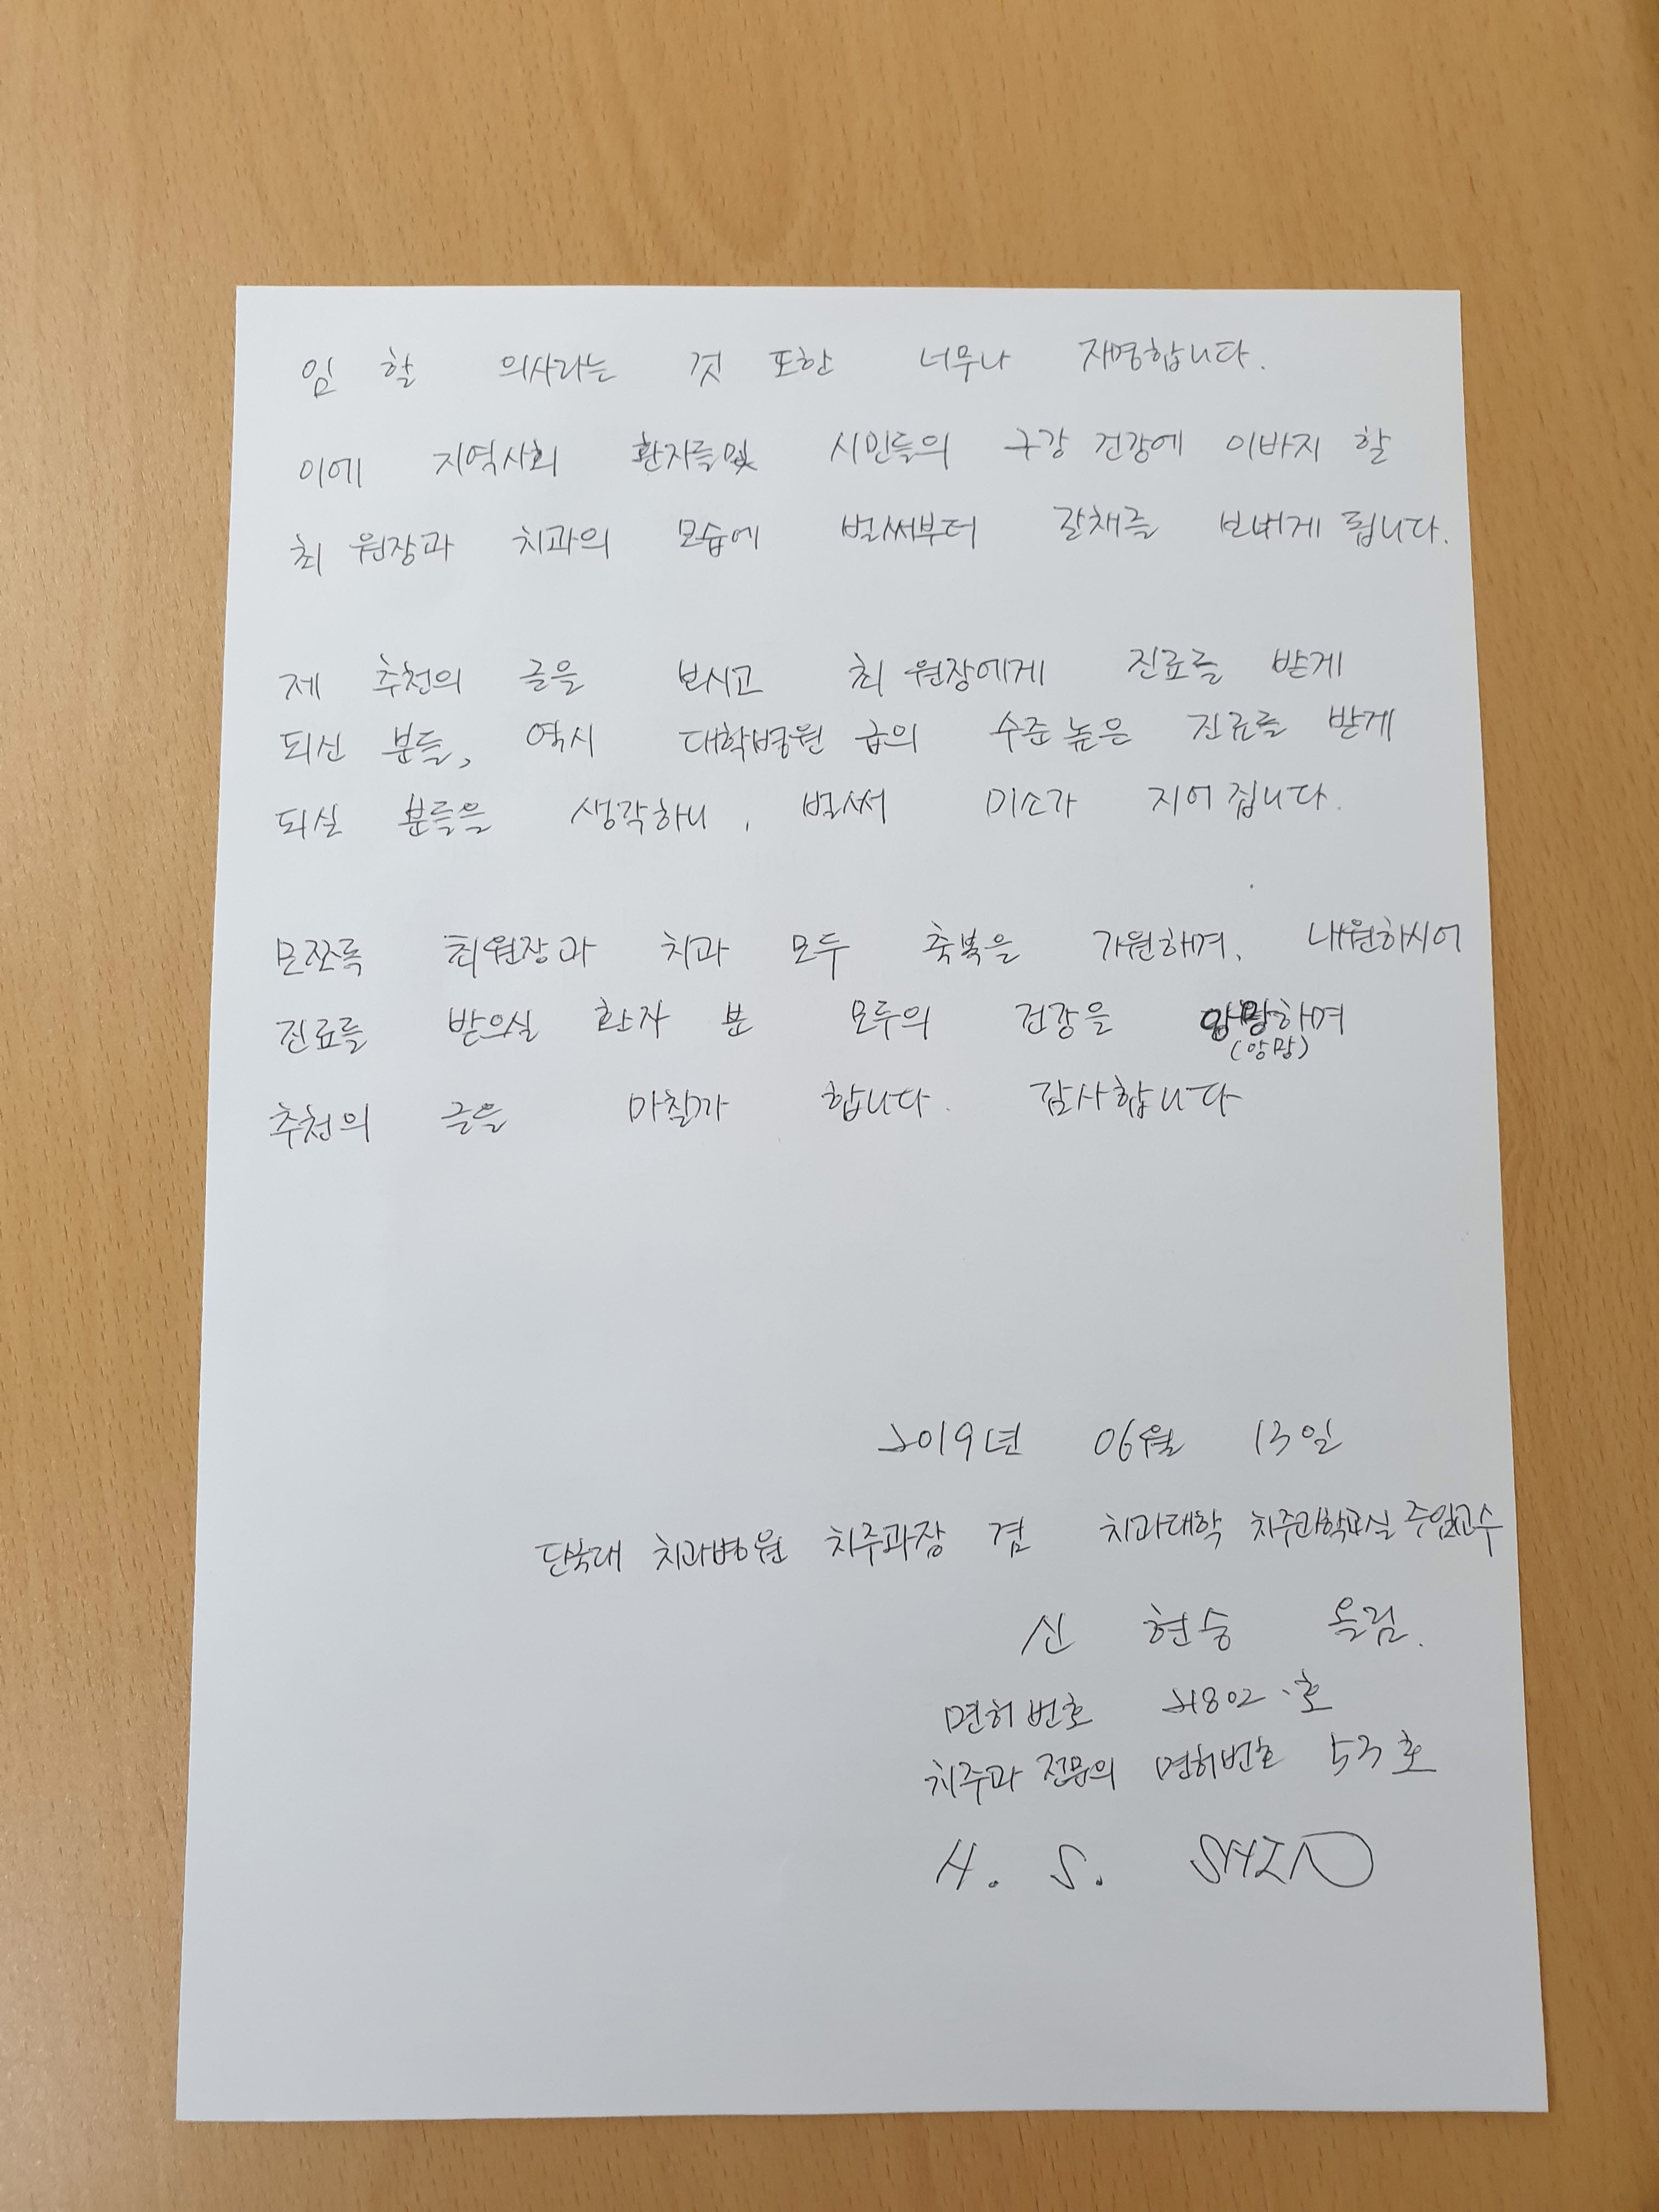 임 할 의사라는 것 또한 너무나 자명합니다.
이에 지역사회 환자들및 시민들의 구강 건강에 이바지 할
최 원장과 치과의 모습에 벌써부터 갈채를 보내게 됩니다.
제 추천의 글을 보시고 최 원장에게 진료를 받게
되신 분들, 역시 대학병원 급의 수준높은 진료를 받게
되실 분들을 생각하니, 벌써 미소가 지어 집니다.
모쪼록 최원장과 치과 모두 축복을 기원하며, 내원하시어
진료를 받으실 환자 분 모두의 건강을 앙망하며
(앙망)
추천의 글을 마칠까 합니다. 감사합니다
2019년 06월 13일
단국대 치과병원 치주과장 겸 치과대학 치주과학교실 주임교수
신 현승 올림.
면허번호 21802 호
치주과 전문의 면허번호 53호
H. S. SHIN